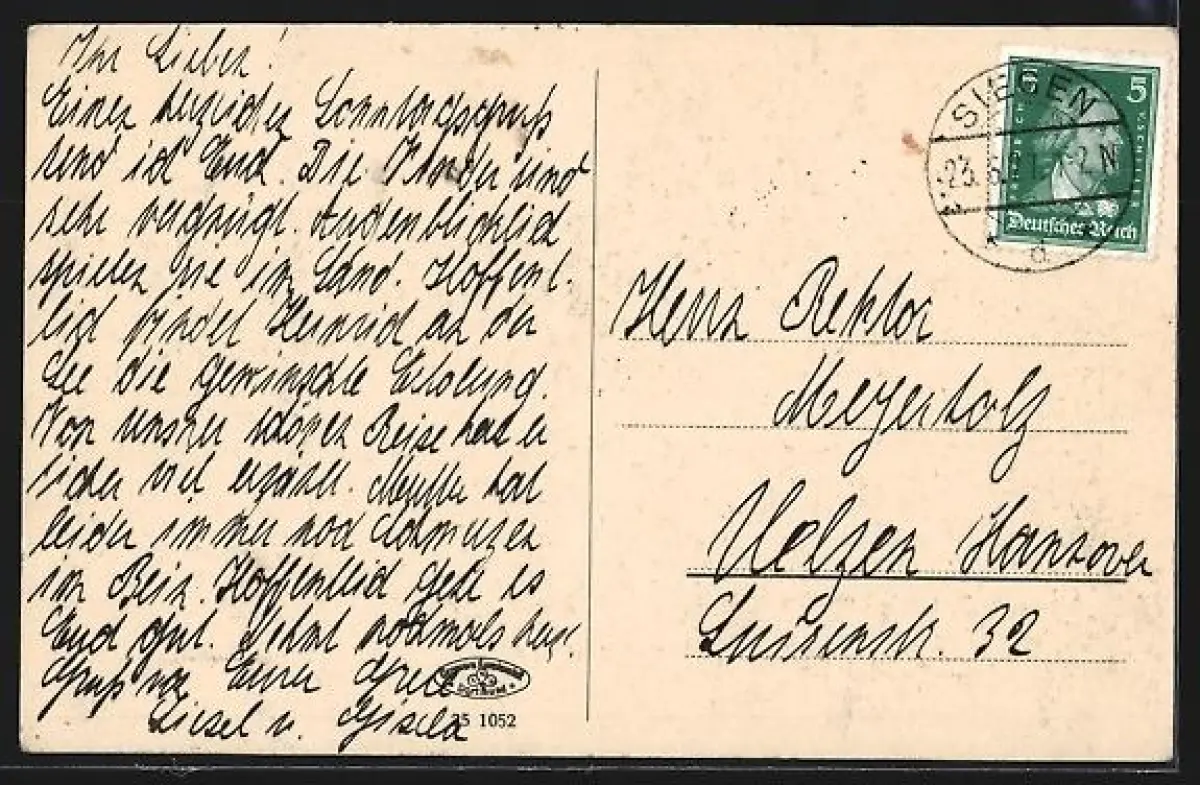 Ihr Lieben!
Einen herzlichen Sonntagsgruß
send ich Euch. Die Kinder sind
sehr vergnügt. Augenblicklich
spielen sie im Sand. Hoffent-
lich findet Heinrich an der
See die gewünschte Erholung.
Von unsrer schönen Reise hat er
sicher viel erzählt. Mutter hat
leider immer noch Schmerzen
im Bein. Hoffentlich geht es
Euch gut. Nehmt nochmals herzl.
Gruß von Eurer Grete
Liesel u. Gisela
25 1052
SIEGEN
5 5
Deutsches Reich
Herrn Rektor
Meyerholz
Uelzen Hannover
Luisenstr. 32